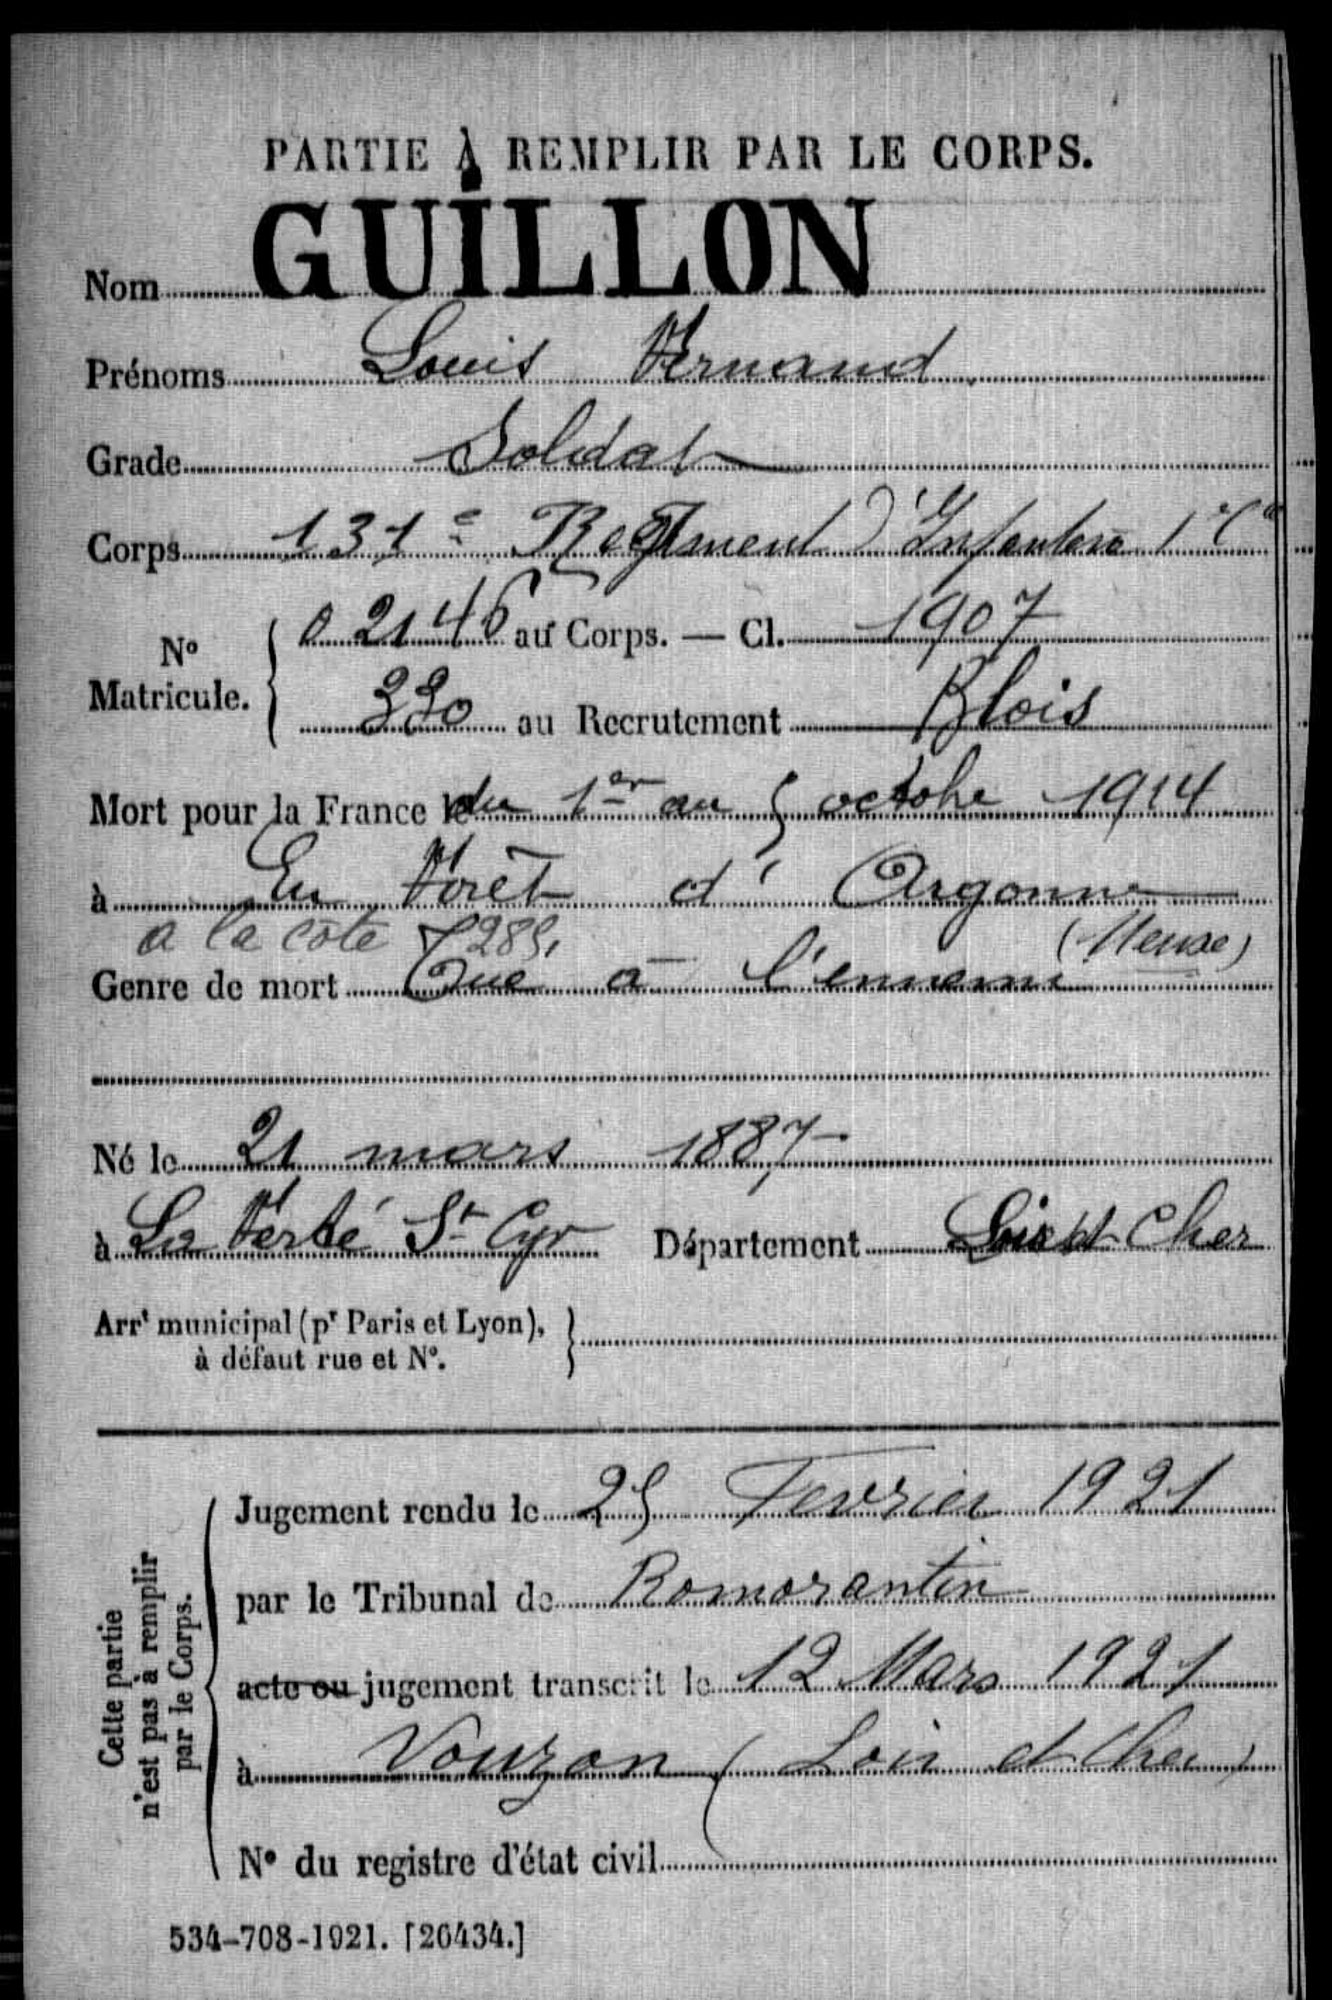 PARTIE À REMPLIR PAR LE CORPS.
Nom GUILLON
Prénoms Louis Fernand
Grade Soldat
Corps 131e Régiment d'Infanterie 1e Cie
No Matricule. 0 2146 au Corps. — Cl. 1907
330 au Recrutement Blois
Mort pour la France du 1er au 5 octobre 1914
à En Forêt d'Argonne
a la côte 285, (Meuse)
Genre de mort Tué à l'ennemi
Né le 21 mars 1887
à La Ferté St Cyr Département Loir et Cher
Arrt municipal (pr Paris et Lyon), à défaut rue et No.
Cette partie n'est pas à remplir par le Corps.
Jugement rendu le 25 Fevrier 1921
par le Tribunal de Romorantin
acte ou jugement transcrit le 12 Mars 1921
à Vouzon (Loir et Cher)
No du registre d'état civil
534-708-1921. [26434.]